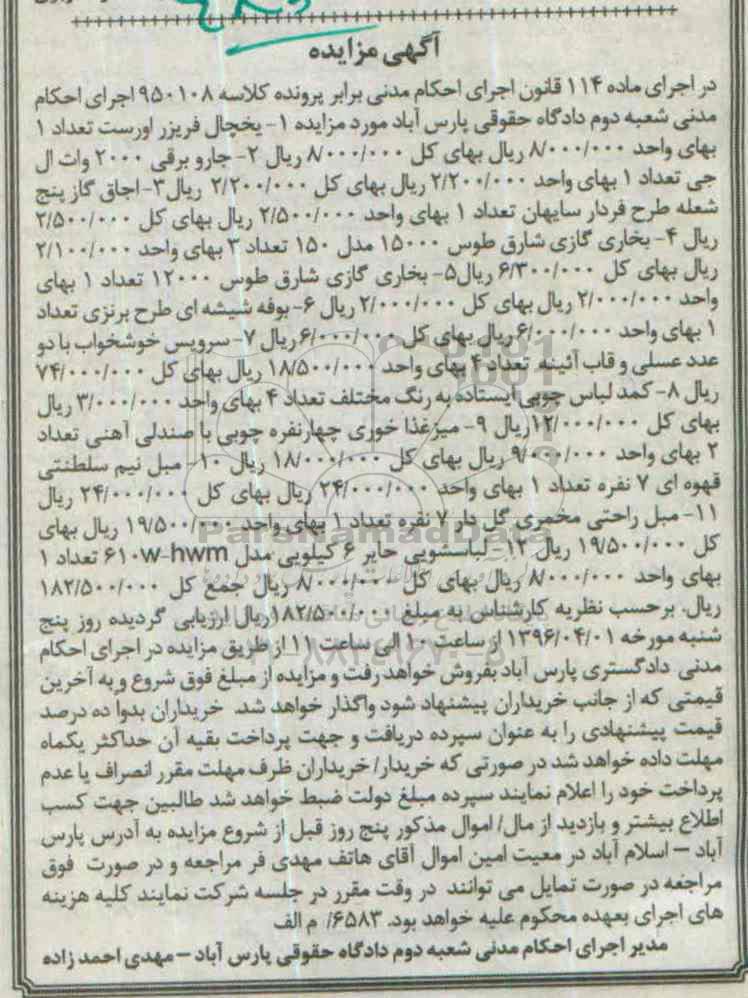 آگهی مزایده
در اجرای ماده ۱۱۴ قانون اجرای احکام مدنی برابر پرونده کلاسه ۹۵۰۱۰۸ اجرای احکام
مدنی شعبه دوم دادگاه حقوقی پارس آباد مورد مزایده ۱- یخچال فریزر اورست تعداد ۱
بهای واحد ۸/۰۰۰/۰۰۰ ریال بهای کل ۸/۰۰۰/۰۰۰ ریال ۲- جارو برقی ۲۰۰۰ وات ال
جی تعداد ۱ بهای واحد ۲/۲۰۰/۰۰۰ ریال بهای کل ۲/۲۰۰/۰۰۰ ریال۳- اجاق گاز پنج
شعله طرح فردار سایهان تعداد ۱ بهای واحد ۲/۵۰۰/۰۰۰ ریال بهای کل ۲/۵۰۰/۰۰۰
ریال ۴- بخاری گازی شارق طوس ۱۵۰۰۰ مدل ۱۵۰ تعداد ۳ بهای واحد ۲/۱۰۰/۰۰۰
ریال بهای کل ۶/۳۰۰/۰۰۰ ریال۵- بخاری گازی شارق طوس ۱۲۰۰۰ تعداد ۱ بهای
واحد ۲/۰۰۰/۰۰۰ ریال بهای کل ۲/۰۰۰/۰۰۰ ریال ۶- بوفه شیشه ای طرح برنزی تعداد
۱ بهای واحد ۶/۰۰۰/۰۰۰ ریال بهای کل ۶/۰۰۰/۰۰۰ ریال ۷- سرویس خوشخواب با دو
عدد عسلی و قاب آئینه تعداد ۴ بهای واحد ۱۸/۵۰۰/۰۰۰ ریال بهای کل ۷۴/۰۰۰/۰۰۰
ریال ۸- کمد لباس چوبی ایستاده به رنگ مختلف تعداد ۴ بهای واحد ۳/۰۰۰/۰۰۰ ریال
بهای کل ۱۲/۰۰۰/۰۰۰ ریال ۹- میز غذا خوری چهارنفره چوبی با صندلی آهنی تعداد
۲ بهای واحد ۹/۰۰۰/۰۰۰ ریال بهای کل ۱۸/۰۰۰/۰۰۰ ریال ۱۰- مبل نیم سلطنتی
قهوه ای ۷ نفره تعداد ۱ بهای واحد ۲۴/۰۰۰/۰۰۰ ریال بهای کل ۲۴/۰۰۰/۰۰۰ ریال
۱۱- مبل راحتی مخمری گل دار ۷ نفره تعداد ۱ بهای واحد ۱۹/۵۰۰/۰۰۰ ریال بهای
کل ۱۹/۵۰۰/۰۰۰ ریال ۱۲- لباسشویی حایر ۶ کیلویی مدل ۶۱۰w-hwm تعداد ۱
بهای واحد ۸/۰۰۰/۰۰۰ ریال بهای کل ۸/۰۰۰/۰۰۰ ریال جمع کل ۱۸۲/۵۰۰/۰۰۰
ریال. برحسب نظریه کارشناس به مبلغ ۱۸۲/۵۰۰/۰۰۰ ریال ارزیابی گردیده روز پنج
شنبه مورخه ۱۳۹۶/۰۴/۰۱ از ساعت ۱۰ الی ساعت ۱۱ از طریق مزایده در اجرای احکام
مدنی دادگستری پارس آباد بفروش خواهد رفت و مزایده از مبلغ فوق شروع و به آخرین
قیمتی که از جانب خریداران پیشنهاد شود واگذار خواهد شد. خریداران بدوا ده درصد
قیمت پیشنهادی را به عنوان سپرده دریافت و جهت پرداخت بقیه آن حداکثر یکماه
مهلت داده خواهد شد در صورتی که خریدار/ خریداران ظرف مهلت مقرر انصراف یا عدم
پرداخت خود را اعلام نمایند سپرده مبلغ دولت ضبط خواهد شد طالبین جهت کسب
اطلاع بیشتر و بازدید از مال/ اموال مذکور پنج روز قبل از شروع مزایده به آدرس پارس
آباد – اسلام آباد در معیت امین اموال آقای هاتف مهدی فر مراجعه و در صورت فوق
مراجعه در صورت تمایل می توانند در وقت مقرر در جلسه شرکت نمایند کلیه هزینه
های اجرای بعهده محکوم علیه خواهد بود. ۶۵۸۳/ م الف
مدیر اجرای احکام مدنی شعبه دوم دادگاه حقوقی پارس آباد – مهدی احمد زاده
ParsNamadData